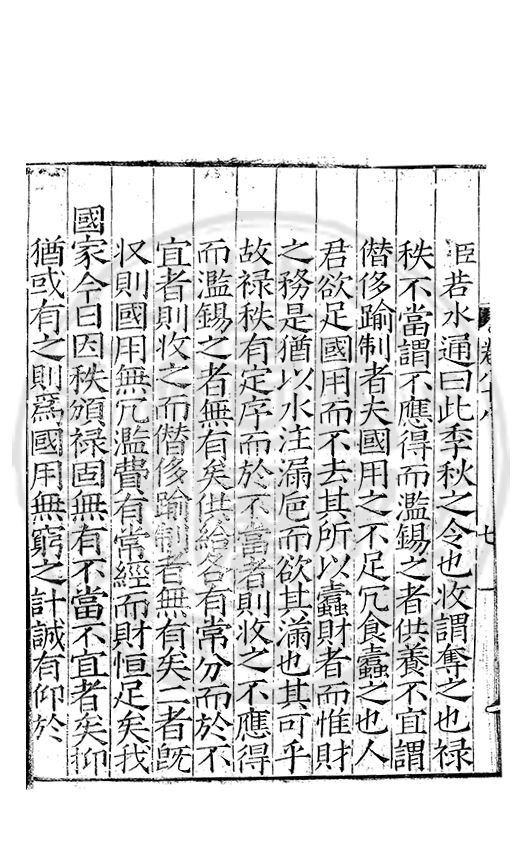 臣若水通曰此季秋之令也收謂奪之也禄
秩不當謂不應得而濫錫之者供養不宜謂
僣侈踰制者夫國用之不足冗食蠹之也人
君欲足國用而不去其所以蠹財者而惟財
之務是猶以水注漏巵而欲其滿也其可乎
故禄秩有定序而於不當者則收之不應得
而濫錫之者無有矣供給各有常分而於不
宜者則收之而僣侈踰制者無有矣二者旣
収則國用無冗濫費有常經而財恒足矣我
國家今日因秩頒禄固無有不當不宜者矣抑
猶或有之則爲國用無窮之計誠有仰於